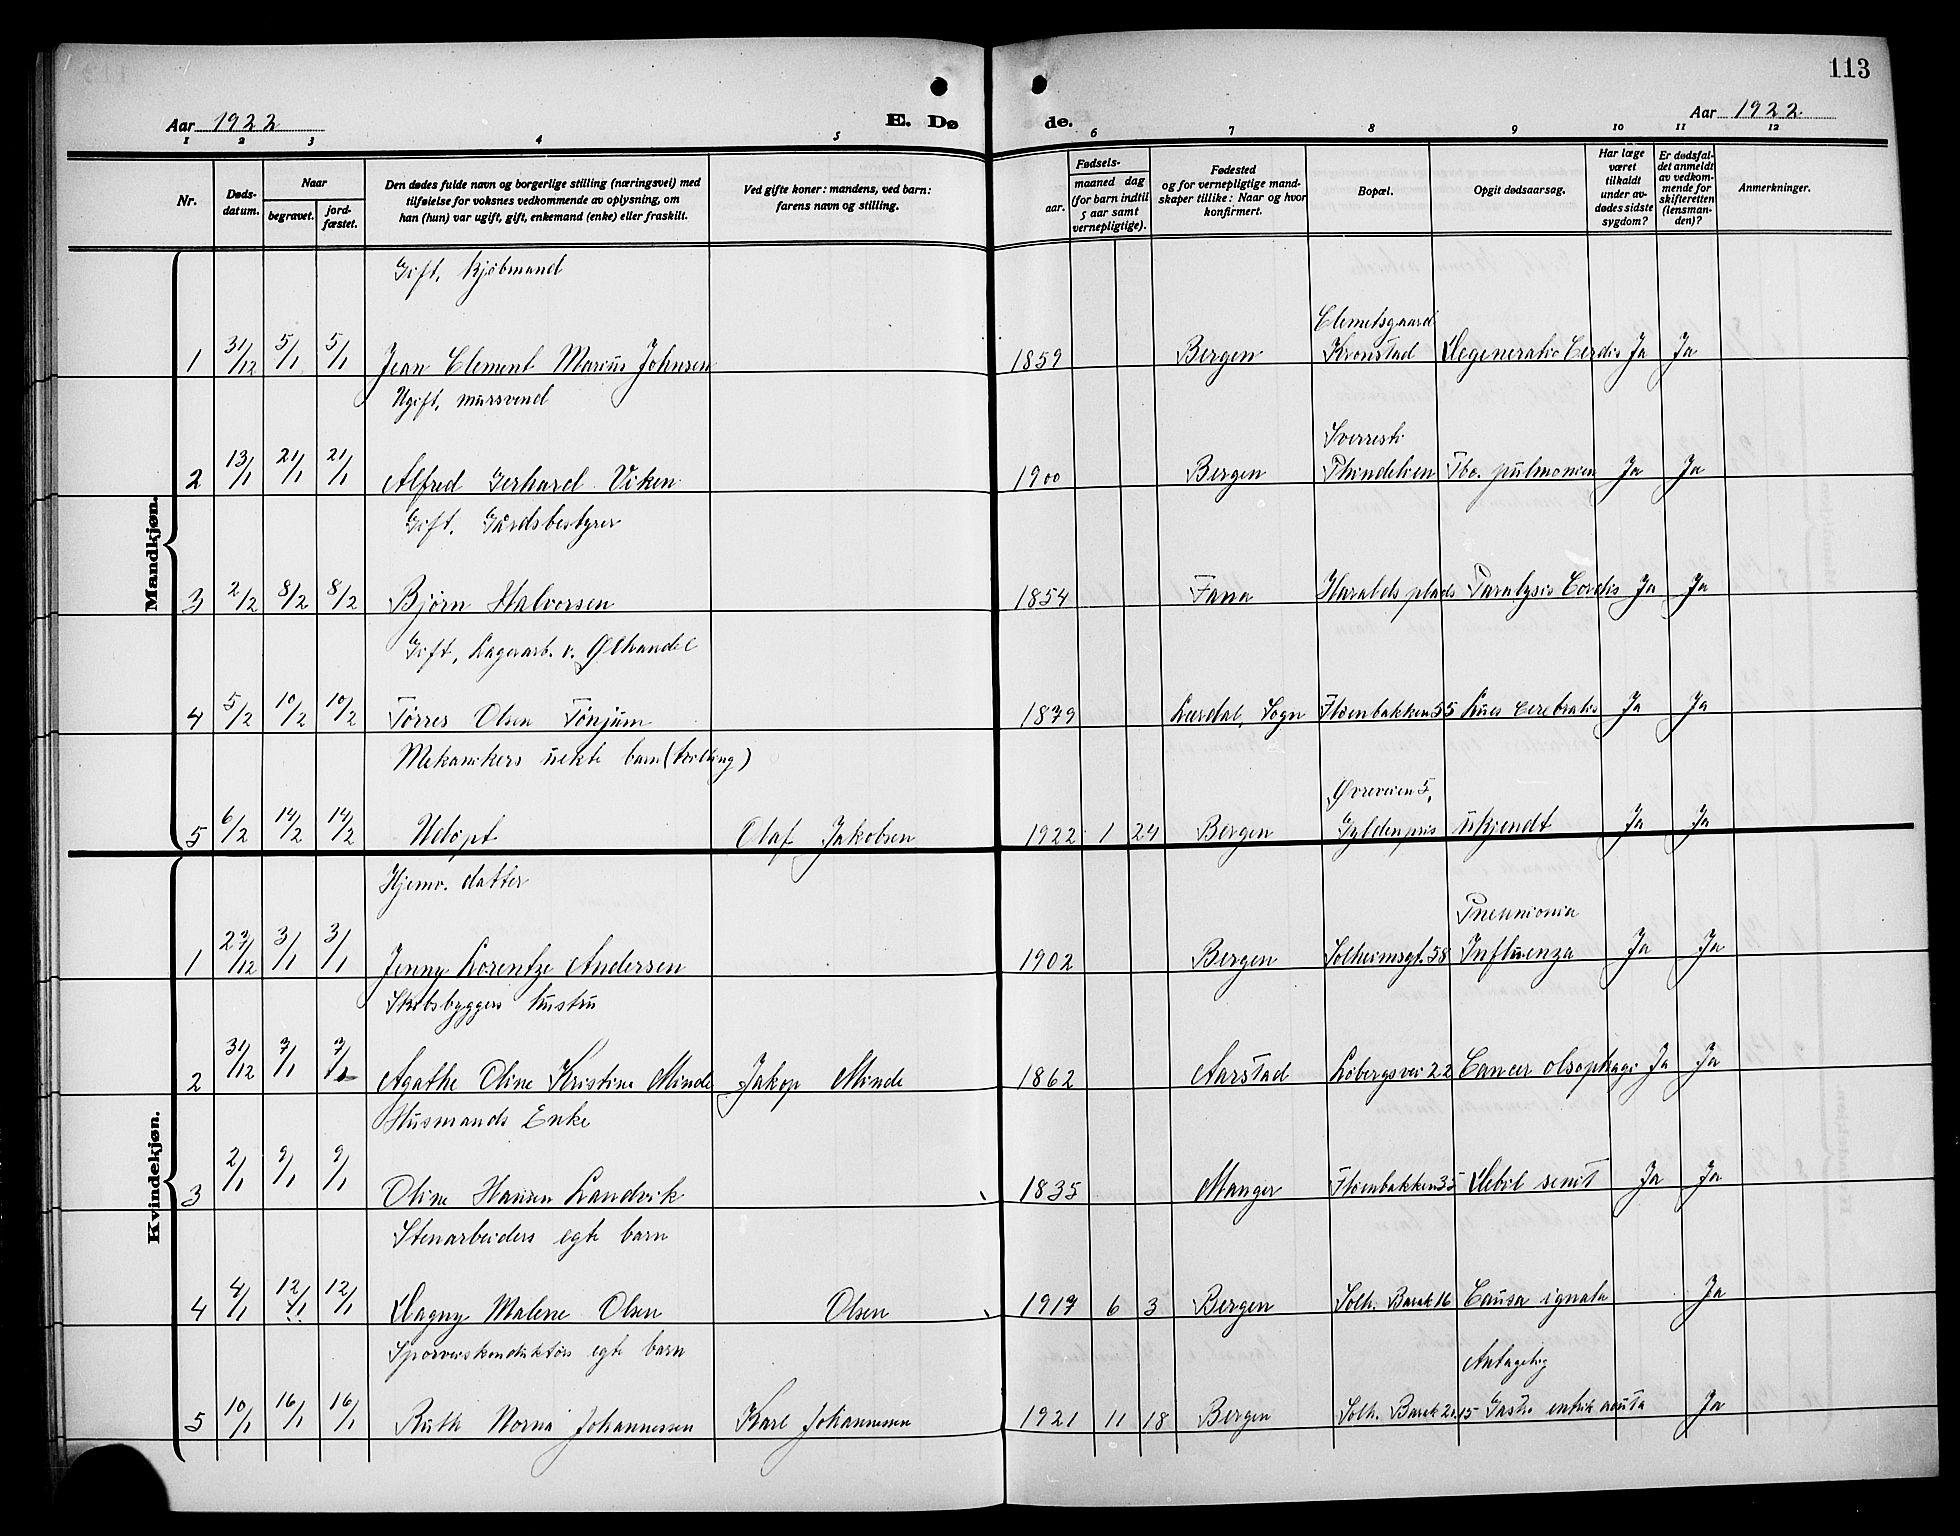 113
Aar 1922 E. Døde. Aar 1922.
1 2 3 4 5 6 7 8 9 10 11 12
Nr. Døds-datum. Naar begravet. jord-fæstet. Den dødes fulde navn og borgerlige stilling (næringsvei) med tilføielse for voksnes vedkommende av oplysning, om han (hun) var ugift, gift, enkemand (enke) eller fraskilt. Ved gifte koner: mandens, ved barn: farens navn og stilling. Fødsels- aar. maaned dag (for barn indtil 5 aar samt vernepligtige). Fødested og for vernepligtige mand-skaper tillike: Naar og hvor konfirmert. Bopæl. Opgit dødsaarsag. Har læge været tilkaldt under av-dødes sidste sygdom? Er dødsfal-det anmeldt av vedkom-mende for skifteretten (lensman-den)? Anmerkninger.
Mandkjøn.
Gift, kjøbmand
Clemetsgaard
1 31/12 5/1 5/1 Jean Clement Marius Johnsen 1859 Bergen Kronstad Degeneratio Cordis Ja Ja
Ugift, mursvend
Sverresti
2 13/1 21/1 21/1 Alfred Gerhard Viken 1900 Bergen Tbc. pulmonien Ja Ja
Gift, Gårdsbestyrer
3 2/2 8/2 8/2 Bjørn Halvorsen 1854 Fana Haralds plads Paralysis Cordis Ja Ja
Gift, Lagerarb. v. Ølhandel
4 5/2 10/2 10/2 Tørres Olsen Tønjum 1879 Lærdal, Sogn Fløenbakken 55 Lues Cerebralis Ja Ja
Mekanikers uekte barn (tvilling)
Øvreveien 5,
5 6/2 14/2 14/2 Udøpt Olaf Jakobsen 1922 1 24 Bergen Gyldenpris ukjendt Ja Ja
Kvindekjøn.
Hjemv. datter
Pneumonia
1 27/12 3/1 3/1 Jenny Lorentze Andersen 1902 Bergen Solheimsgt. 58 Influenza Ja Ja
Skibsbyggers hustru
2 31/12 7/1 7/1 Agathe Oline Kristine Minde Jakop Minde 1862 Aarstad Løbergsvei 22 Cancer olsophagi Ja Ja
Husmands Enke
3 2/1 9/1 9/1 Oline Hansen Landvik 1835 Manger Fløenbakken 35 Debil senit Ja Ja
Stenarbeiders egte barn
4 4/1 12/1 12/1 Dagny Malene Olsen Olsen 1917 6 3 Bergen Solh. Barak 16 Causa ignata Ja
Sporveiskonduktørs egte barn
Antagelig
5 10/1 16/1 16/1 Ruth Norna Johannessen Karl Johannessen 1921 11 18 Bergen Solh. Barak 21.15 Gastro entrik acuta Ja